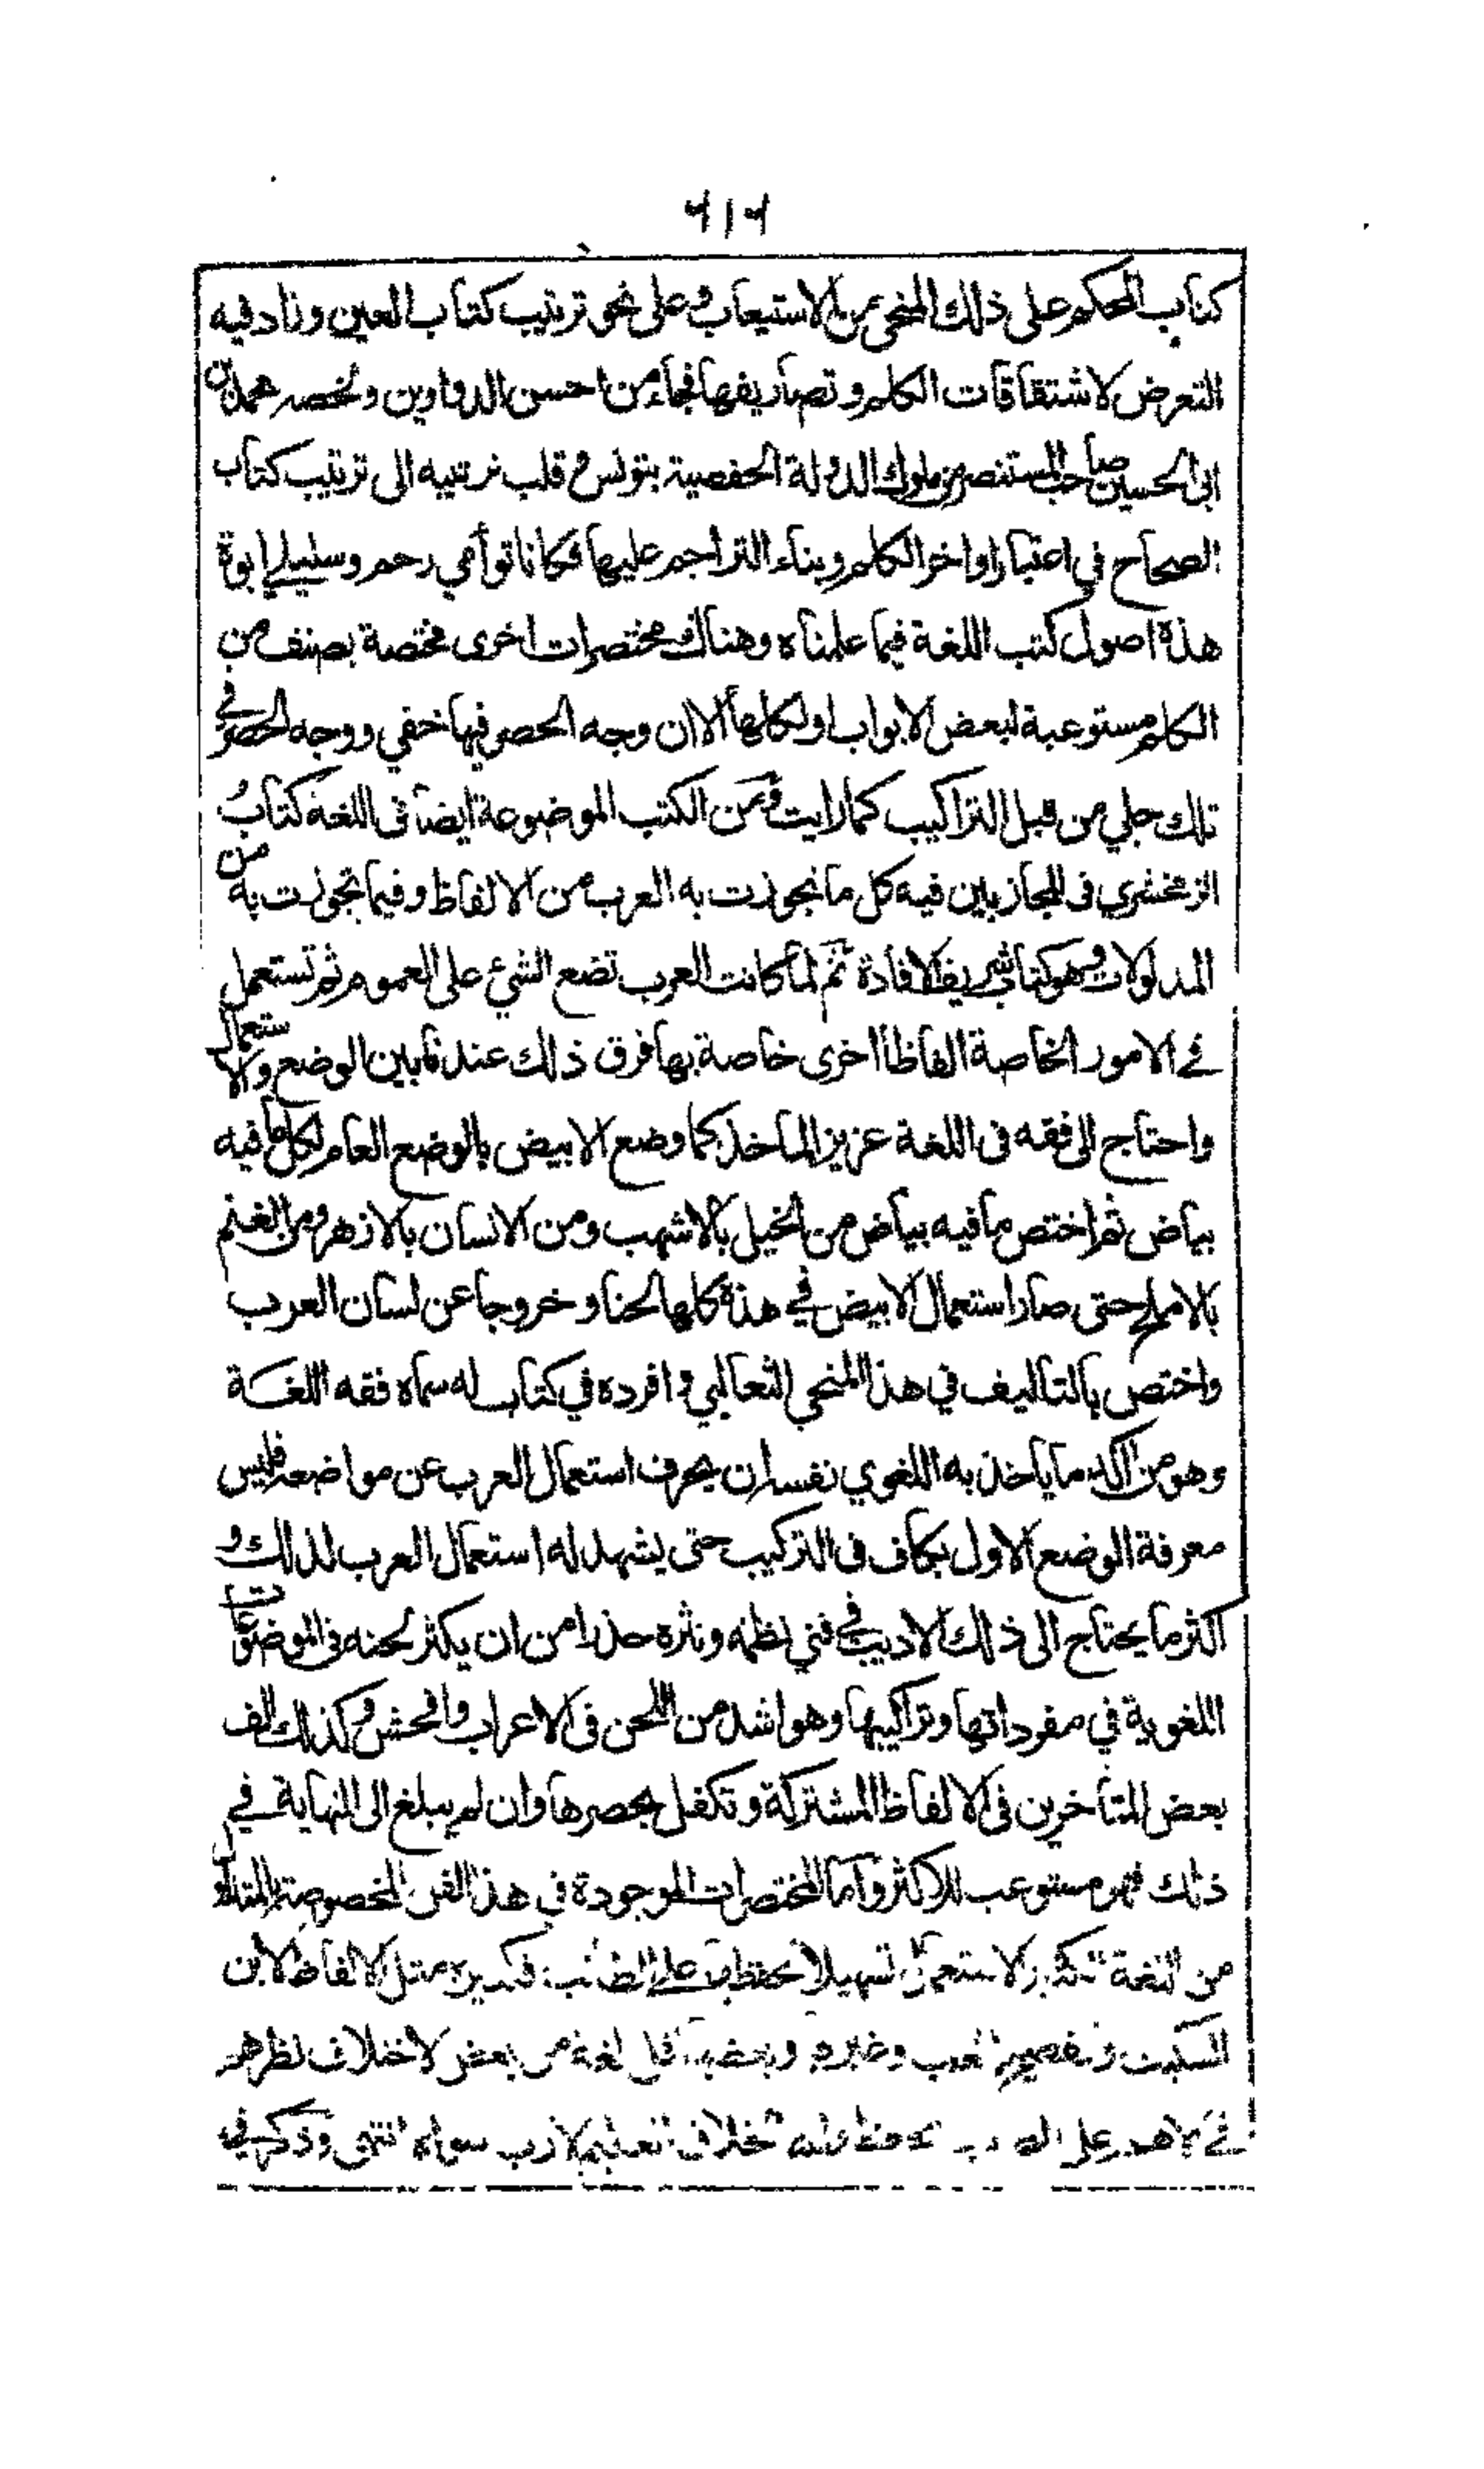 ٦١٦
كتاب المحكم على ذلك المنحى من الاستيعاب وعلى نحو ترتيب كتاب العين وزاد فيه
التعرض لاشتقاقات الكلم وتصاريفها فجاء من احسن الدواوين ولخصه محمد بن
ابى الحسين صاحب المستنصر من ملوك الدولة الحفصية بتونس وقلب ترتيبه الى ترتيب كتاب
الصحاح في اعتبار اواخر الكلم وبناء التراجم عليها فكانا توأمي رحم وسليلي ابوة
هذه اصول كتب اللغة فيما علمناه وهناك مختصرات اخرى مختصة بصنف من
الكلم مستوعبة لبعض الابواب او لكلها الا ان وجه الحصر فيها خفي ووجه الحصر في
تلك جلي من قبل التراكيب كما رايت ومن الكتب الموضوعة ايضا فى اللغة كتاب
الزمخشري فى المجاز بين فيه كل ما تجوزت به العرب من الالفاظ وفيما تجوزت به من
المدلولات وهو كتاب شريف الافادة ثم لما كانت العرب تضع الشئ على العموم ثم تستعمل
في الامور الخاصة الفاظا اخرى خاصة بها فرق ذلك عندنا بين الوضع والاستعمال
واحتاج الى فقه فى اللغة عزيز الماخذ كما وضع الابيض بالوضع العام لكل ما فيه
بياض ثم اختص ما فيه بياض من الخيل بالاشهب ومن الانسان بالازهر ومن الغنم
بالاملح حتى صار استعمال الابيض في هذه كلها لحنا وخروجا عن لسان العرب
واختص بالتاليف في هذا المنحى الثعالبي وافرده في كتاب له سماه فقه اللغة
وهو من اكد ما ياخذ به اللغوي نفسه ان يحرف استعمال العرب عن مواضعه فليس
معرفة الوضع الاول بكاف فى التركيب حتى يشهد له استعمال العرب لذلك و
اكثر ما يحتاج الى ذلك الاديب في فني نظمه ونثره حذرا من ان يكثر لحنه فى الموضوعات
اللغوية في مفرداتها وتراكيبها وهو اشد من اللحن فى الاعراب وافحش وكذلك الف
بعض المتأخرين فى الالفاظ المشتركة وتكفل بحصرها وان لم يبلغ الى النهاية في
ذلك فهو مستوعب للاكثر واما المختصرات الموجودة في هذا الفن المخصوصة بالمتداول
من اللغة الكثير الاستعمال تسهيلا لحفظها على الطالب فكثيرة مثل الالفاظ لابن
السكيت والفصيح لثعلب وغيرهما وبعضها اقل لغة من بعض لاختلاف نظرهم
في الاهم على الطالب للحفظ والله الخلاق العليم لا رب سواه انتهى وذكر في